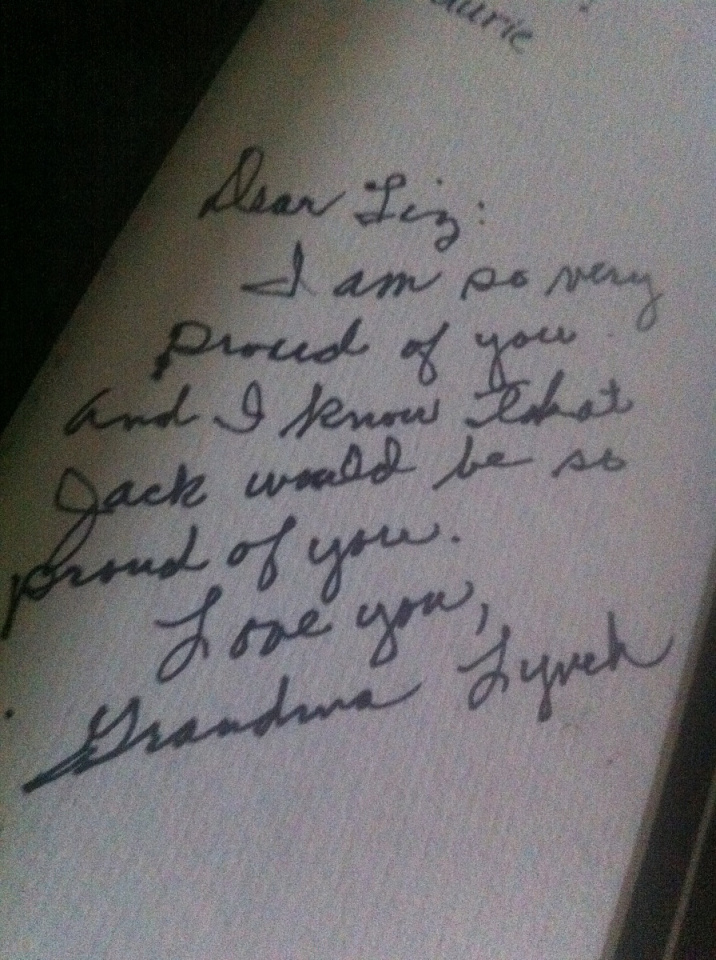 Dear Liz:
I am so very
proud of you
and I know that
Jack would be so
proud of you.
Love you,
Grandma Lynch